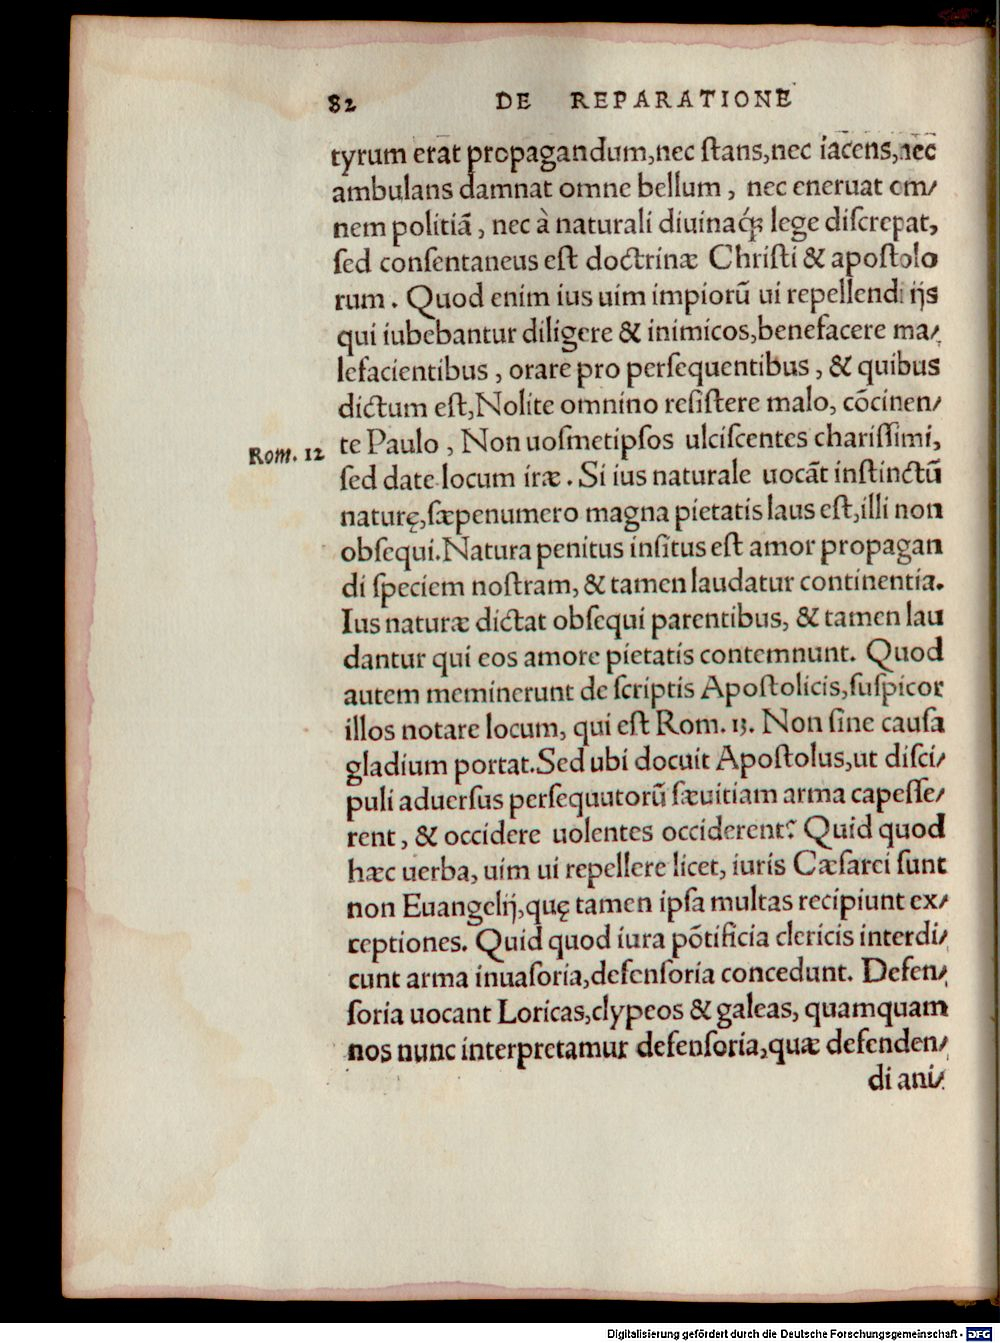 82 DE REPARATIONE
tyrum erat propagandum,nec ſtans,nec iacens,nec
ambulans damnat omne bellum , nec eneruat om/
nem politiã , nec à naturali diuinaq́ꝫ lege diſcrepat,
ſed conſentaneus eſt doctrinæ Chriſti & apoſtolo
rum . Quod enim ius uim impiorũ ui repellendi ijs
qui iubebantur diligere & inimicos,benefacere ma/
lefacientibus , orare pro perſequentibus , & quibus
dictum eſt,Nolite omnino reſiſtere malo, cõcinen/
Rom. 12 te Paulo , Non uoſmetipſos ulciſcentes chariſſimi,
ſed date locum iræ . Si ius naturale uocãt inſtinctũ
naturę,ſæpenumero magna pietatis laus eſt,illi non
obſequi.Natura penitus inſitus eſt amor propagan
di ſpeciem noſtram, & tamen laudatur continentia.
Ius naturæ dictat obſequi parentibus, & tamen lau
dantur qui eos amore pietatis contemnunt. Quod
autem meminerunt de ſcriptis Apoſtolicis,ſuſpicor
illos notare locum, qui eſt Rom. 13. Non ſine cauſa
gladium portat.Sed ubi docuit Apoſtolus,ut diſci/
puli aduerſus perſequutorũ ſæuitiam arma capeſſe/
rent , & occidere uolentes occiderent? Quid quod
hæc uerba, uim ui repellere licet, iuris Cæſarei ſunt
non Euangelij,quę tamen ipſa multas recipiunt ex/
ceptiones. Quid quod iura põtificia clericis interdi/
cunt arma inuaſoria,defenſoria concedunt. Defen/
ſoria uocant Loricas,clypeos & galeas, quamquam
nos nunc interpretamur defenſoria,quæ defenden/
di ani/
Digitalisierung gefördert durch die Deutsche Forschungsgemeinschaft - DFG